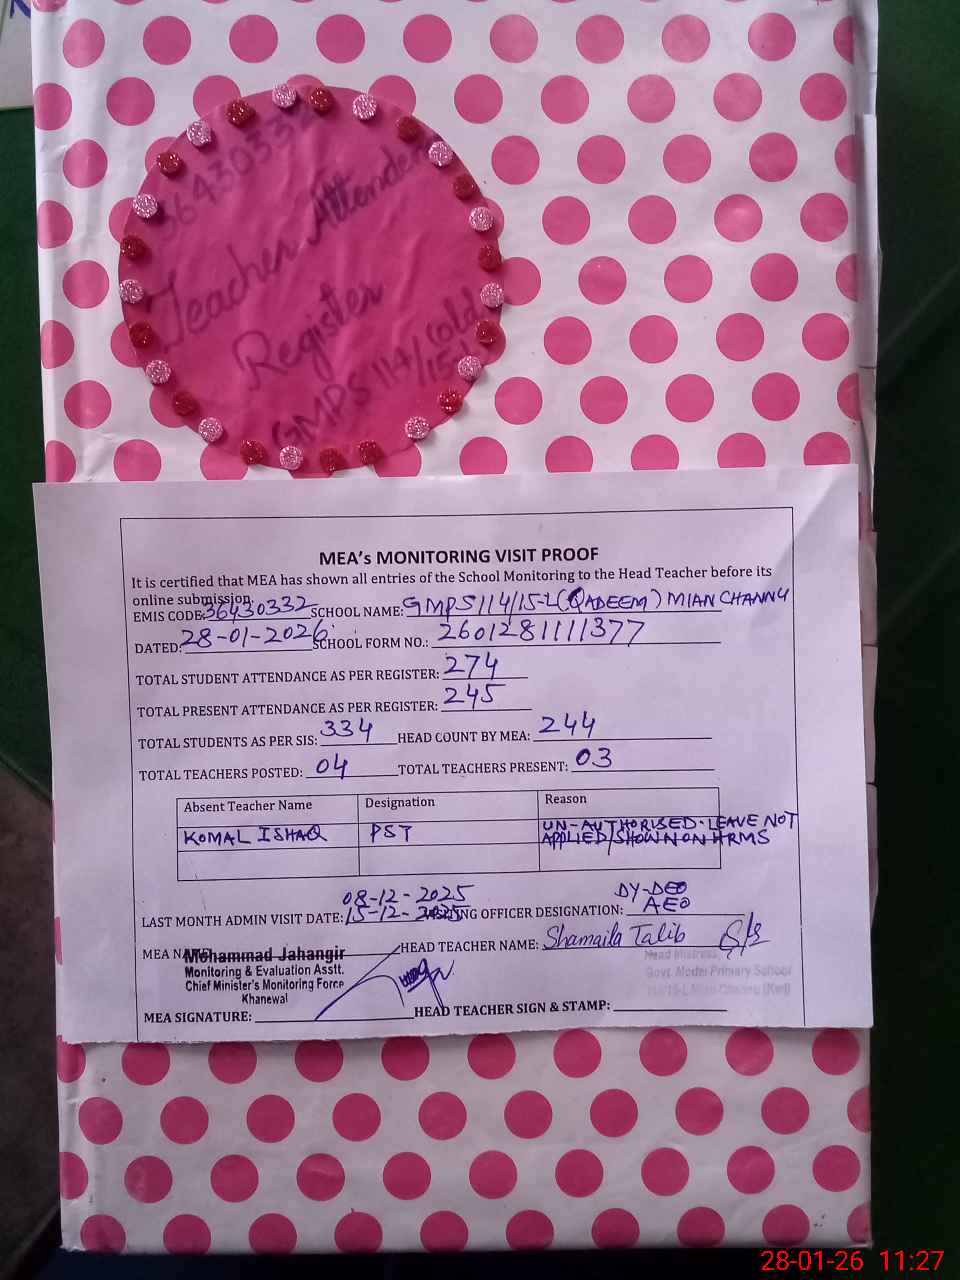 36430332
Teacher Attenden
Register
GMPS 114/ (old)
15-L
MEA's MONITORING VISIT PROOF
It is certified that MEA has shown all entries of the School Monitoring to the Head Teacher before its
online submission.
EMIS CODE: 36430332 SCHOOL NAME: GMPS 114/15-L (QADEEM) MIAN CHANNU
DATED: 28-01-2026 SCHOOL FORM NO.: 2601281111377
TOTAL STUDENT ATTENDANCE AS PER REGISTER: 274
TOTAL PRESENT ATTENDANCE AS PER REGISTER: 245
TOTAL STUDENTS AS PER SIS: 334 HEAD COUNT BY MEA: 244
TOTAL TEACHERS POSTED: 04 TOTAL TEACHERS PRESENT: 03
Absent Teacher Name Designation Reason
KOMAL ISHAQ PST UN-AUTHORISED. LEAVE NOT
APPLIED/SHOWN ON HRMS
08-12-2025 DY-DEO
LAST MONTH ADMIN VISIT DATE: 15-12-2025 VISITING OFFICER DESIGNATION: AEO
MEA NAME HEAD TEACHER NAME: Shamaila Talib
Mohammad Jahangir
Monitoring & Evaluation Asstt.
Chief Minister's Monitoring Force
Khanewal
Head Mistress
Govt. Model Primary School
114/15-L Mian Channu (Kwl)
MEA SIGNATURE: HEAD TEACHER SIGN & STAMP:
28-01-26 11:27